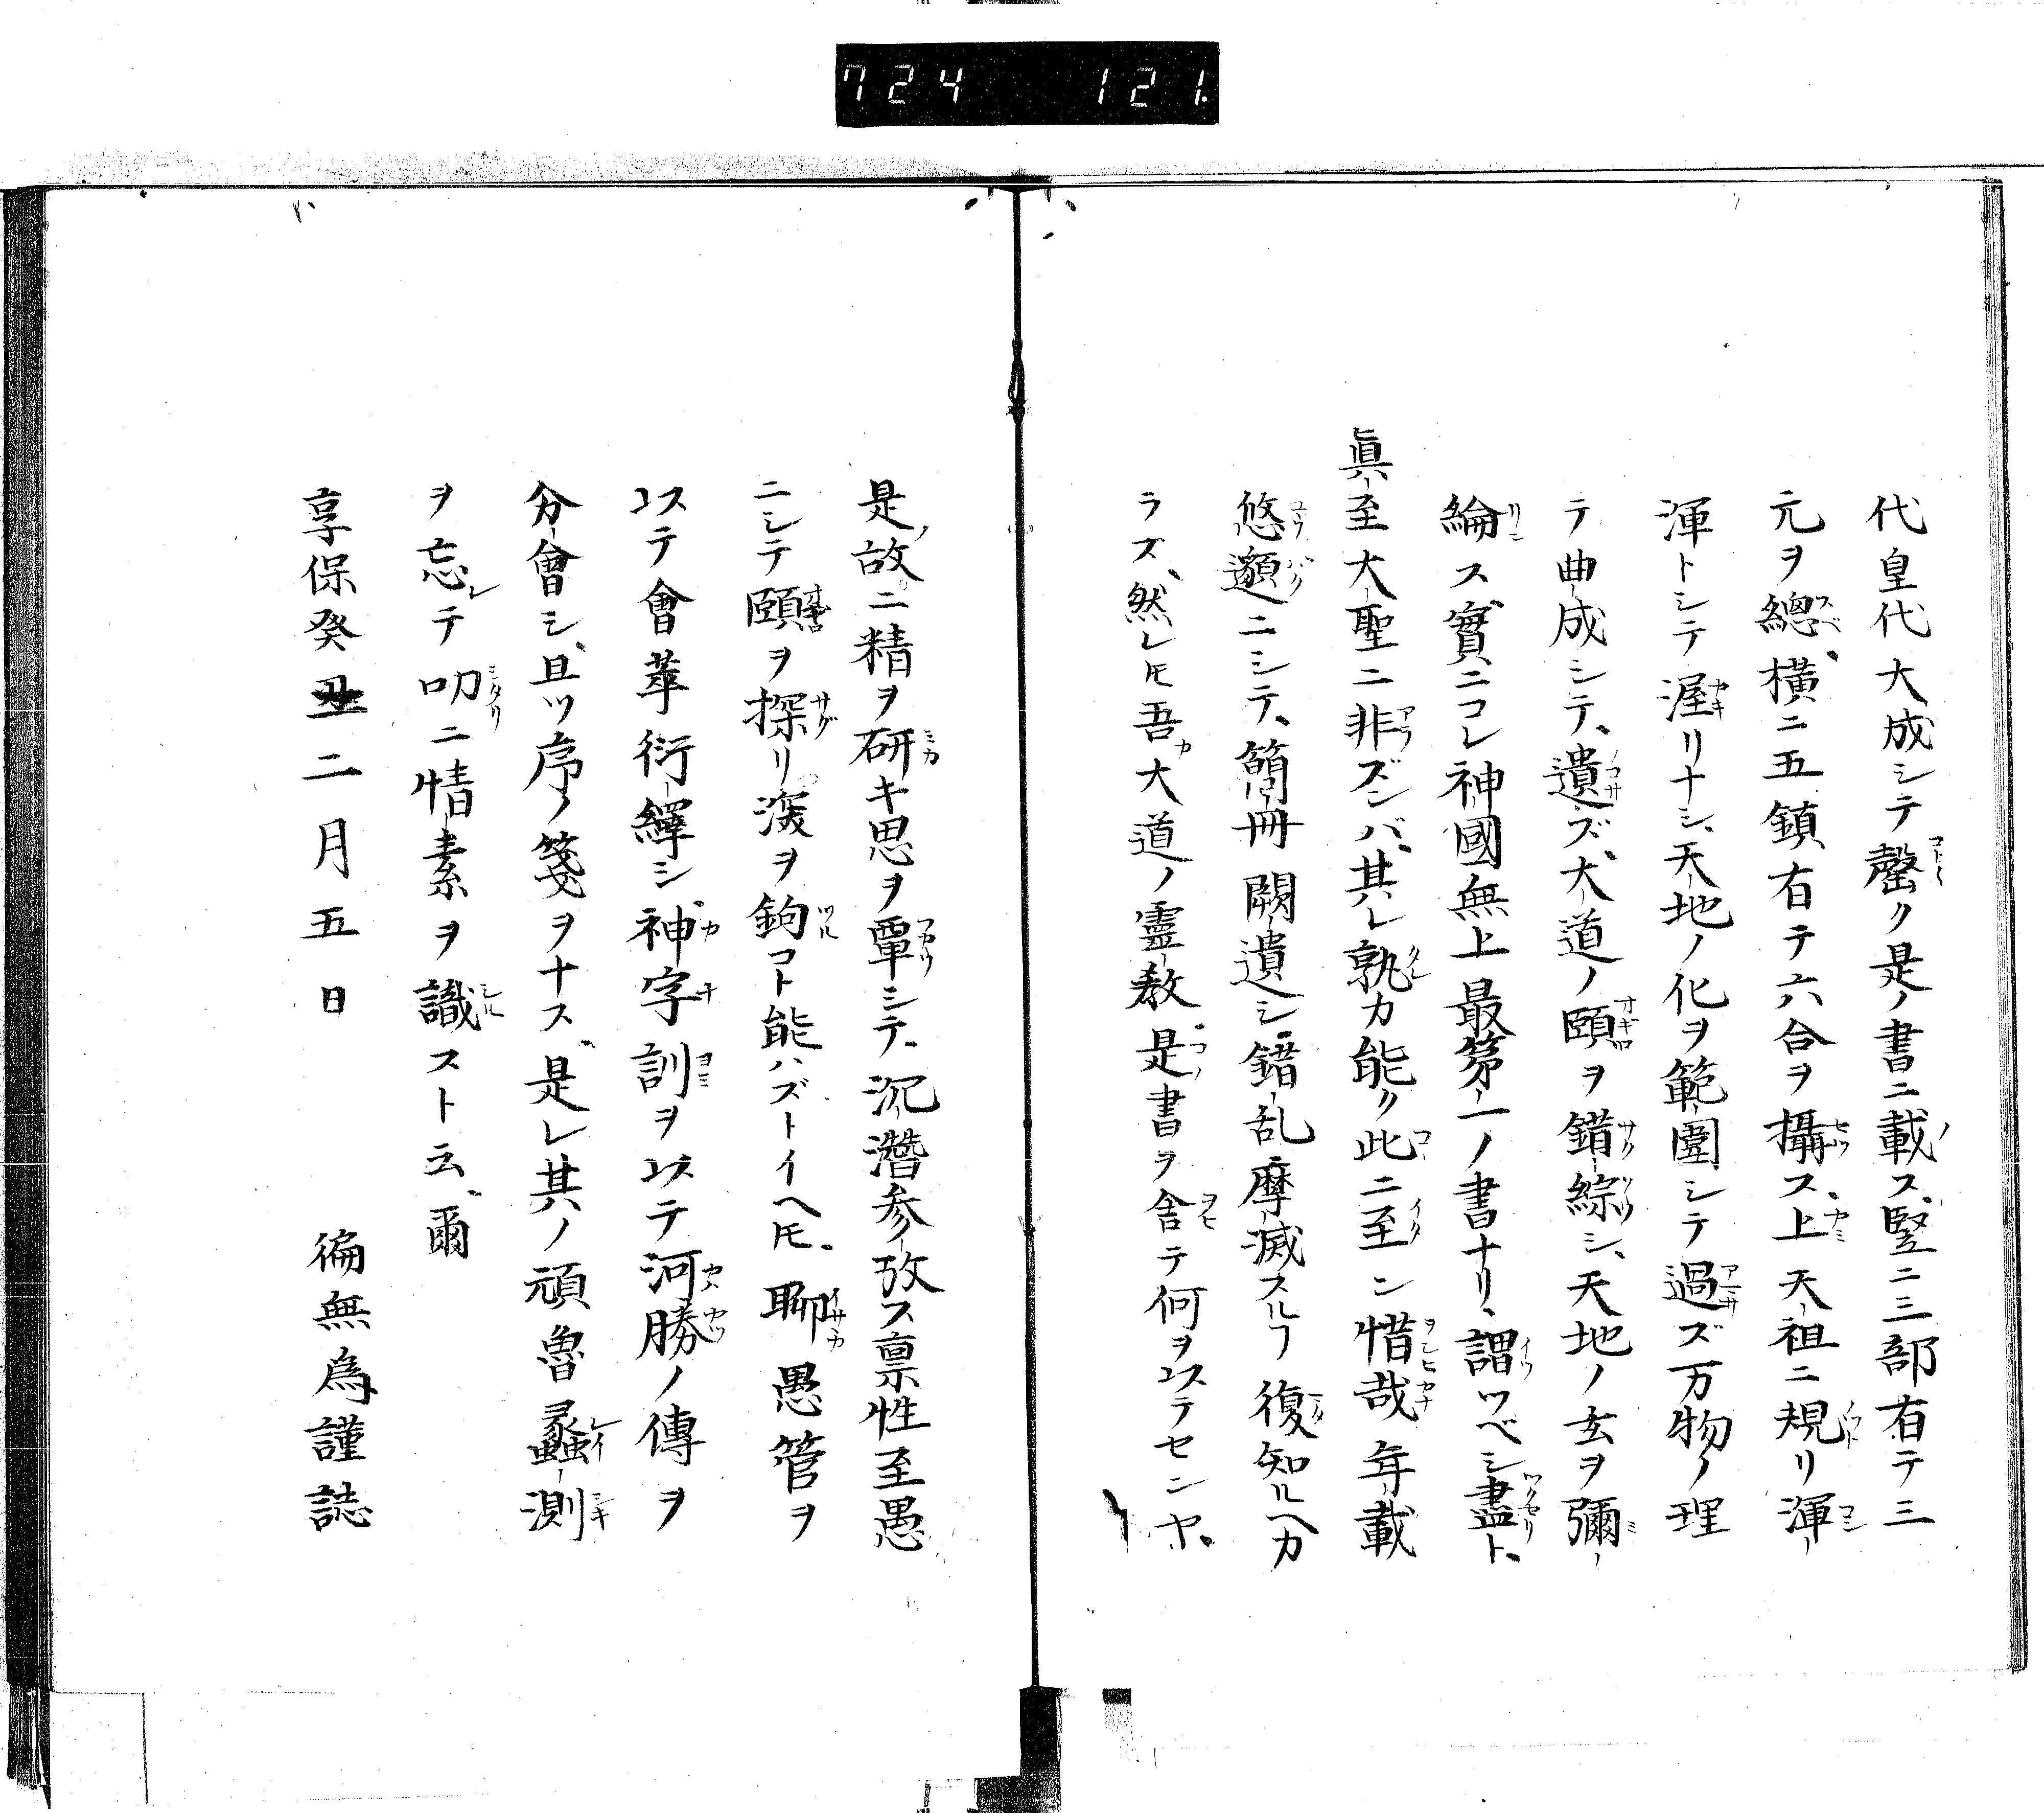 724 121.
代皇代大成シテ罄ク是ノ書ニ載ス、竪ニ三部有テ三
元ヲ總、横ニ五鎮有テ六合ヲ攝ス、上天祖ニ規リ渾
渾トシテ渥リナシ、天地ノ化ヲ範圍シテ過ズ万物ノ理
テ曲成シテ、遺ズ、大道ノ頤ヲ錯綜シ、天地ノ玄ヲ彌
綸ス實ニコレ神國無上最第一ノ書ナリ、謂ツベシ盡ト、
眞至大聖ニ非ズンバ、其レ孰カ能ク此ニ至ン惜哉年載
悠邈ニシテ、簡冊闕遺シ錯乱摩滅スルヿ復知ルヘカ
ラズ、然レ𪜈吾カ大道ノ靈教是書ヲ舎テ何ヲ以テセンヤ、
是ノ故ニ精ヲ研キ思ヲ覃シテ、沉潛参攷ス禀性至愚
ニシテ頤ヲ探リ深ヲ鉤コト能ハズトイヘ𪜈、聊愚管ヲ
以テ會萃衍繹シ、神字訓ヲ以テ河勝ノ傳ヲ
分會シ、且ツ序ノ箋ヲナス、是レ其ノ頑魯蠡測
ヲ忘レテ叨ニ情素ヲ識スト云、爾
享保癸丑二月五日 徧無為謹誌